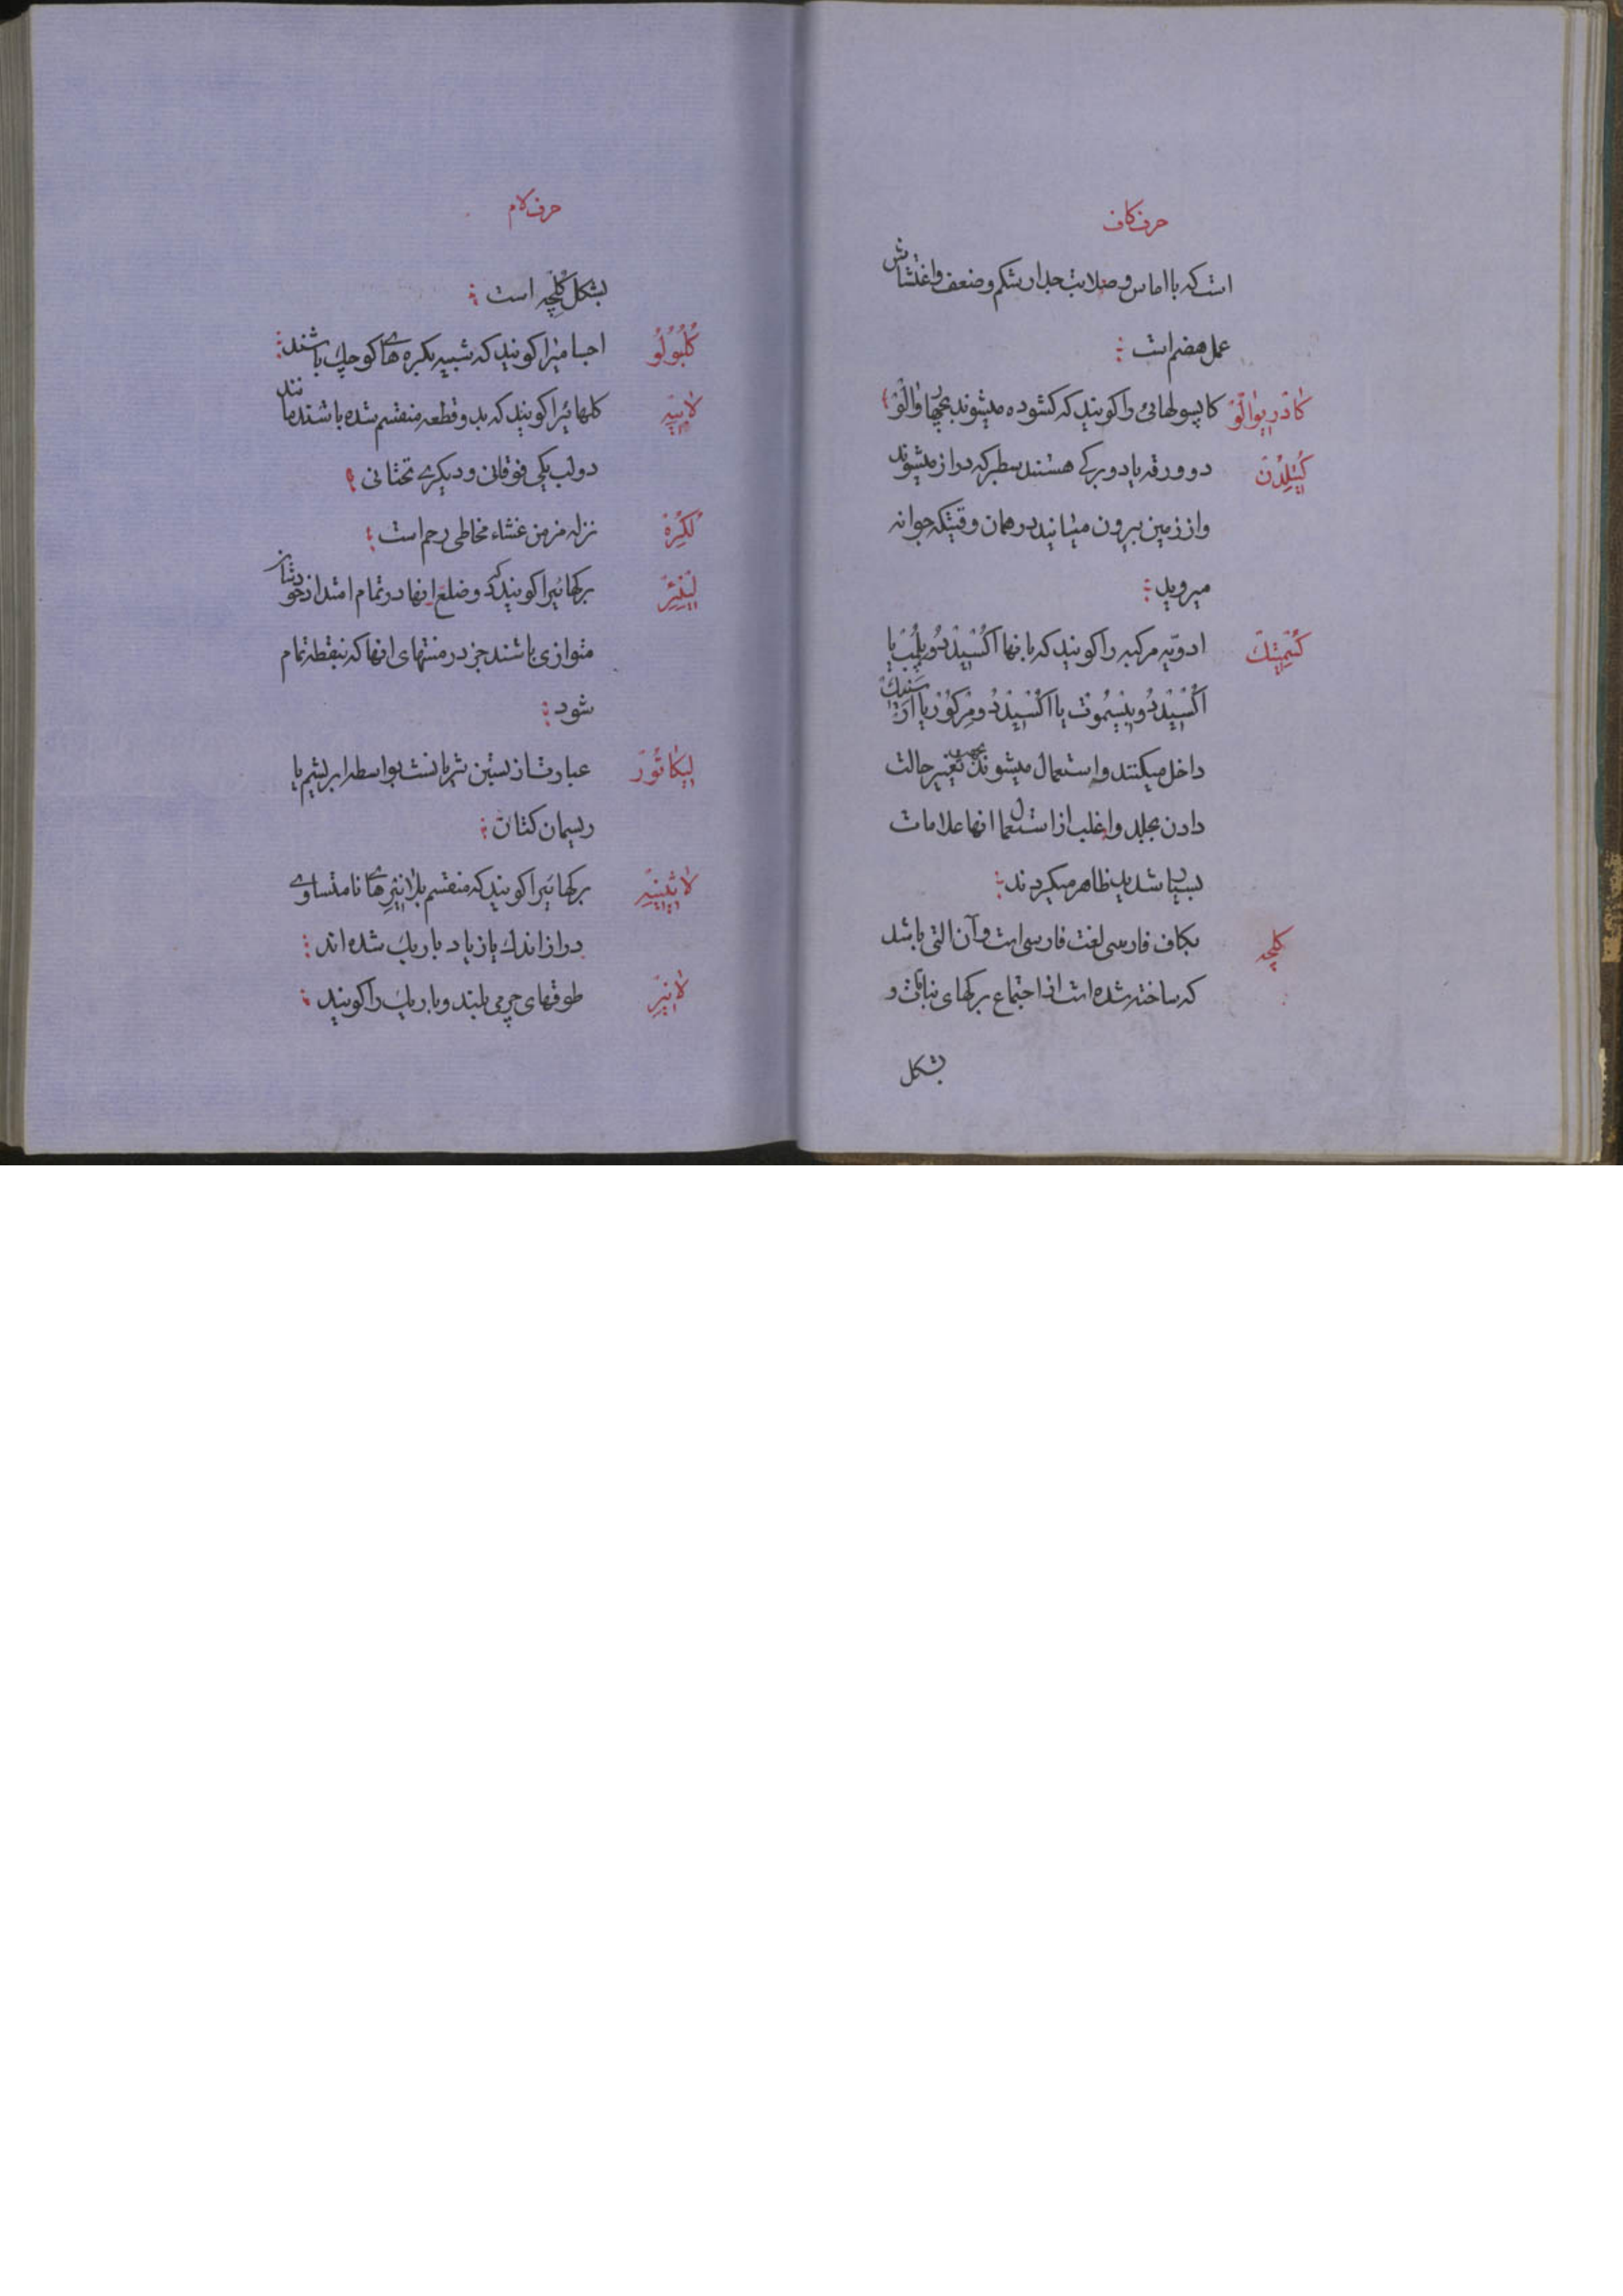 حرف کاف
است که با اماس و صلابت جدار شکم و ضعف و اغتشاش
عمل هضم است
کاذریوالو کاپسولهائی را کویند که کشوده میشوند بچهار والو
کتیلدن دو ورقه یا دو برکی هستند سطبر که دراز میشوند
و از زمین بیرون میایند در همان وقتیکه جوانه
میروید
کسمتیک ادویه مرکبه را کویند که بانها اکسید دو پلمب یا
اکسید دو بیسموت یا اکسید دو مرکور یا ارسنیک
داخل میکنند و استعمال میشوند بجهت تغییر حالت
دادن بجلد و اغلب از استعمال انها علامات
بسیار شدید ظاهر میکردند
کلیچه بکاف فارسی لغت فارسی است و آن التی باشد
که ساخته شده است از اجتماع برکهای نباتات و
بشکل
حرف لام
بشکل کلیچه است
کلبولو اجسامی را کویند که شبیه بکره های کوچک باشند
لابیه کلهائی را کویند که بدو قطعه منقسم شده باشند مانند
دولب یکی فوقانی و دیکری تحتانی
لکره نزله مزمن غشاء مخاطی رحم است
لینیر برکهائیرا کویند که دو ضلع انها در تمام امتداد خودشان
متوازی باشند جز در منتهای انها که بنقطه تمام
شود
لیکاتور عبارت از بستن شریانست بواسطه ابریشم یا
ریسمان کتان
لاثینیه برکهائیرا کویند که منقسم بلانیر های نامتساوی
دراز اندک یا زیاد باریک شده اند
لانیر طوقهای چرمی بلند و باریک را کویند